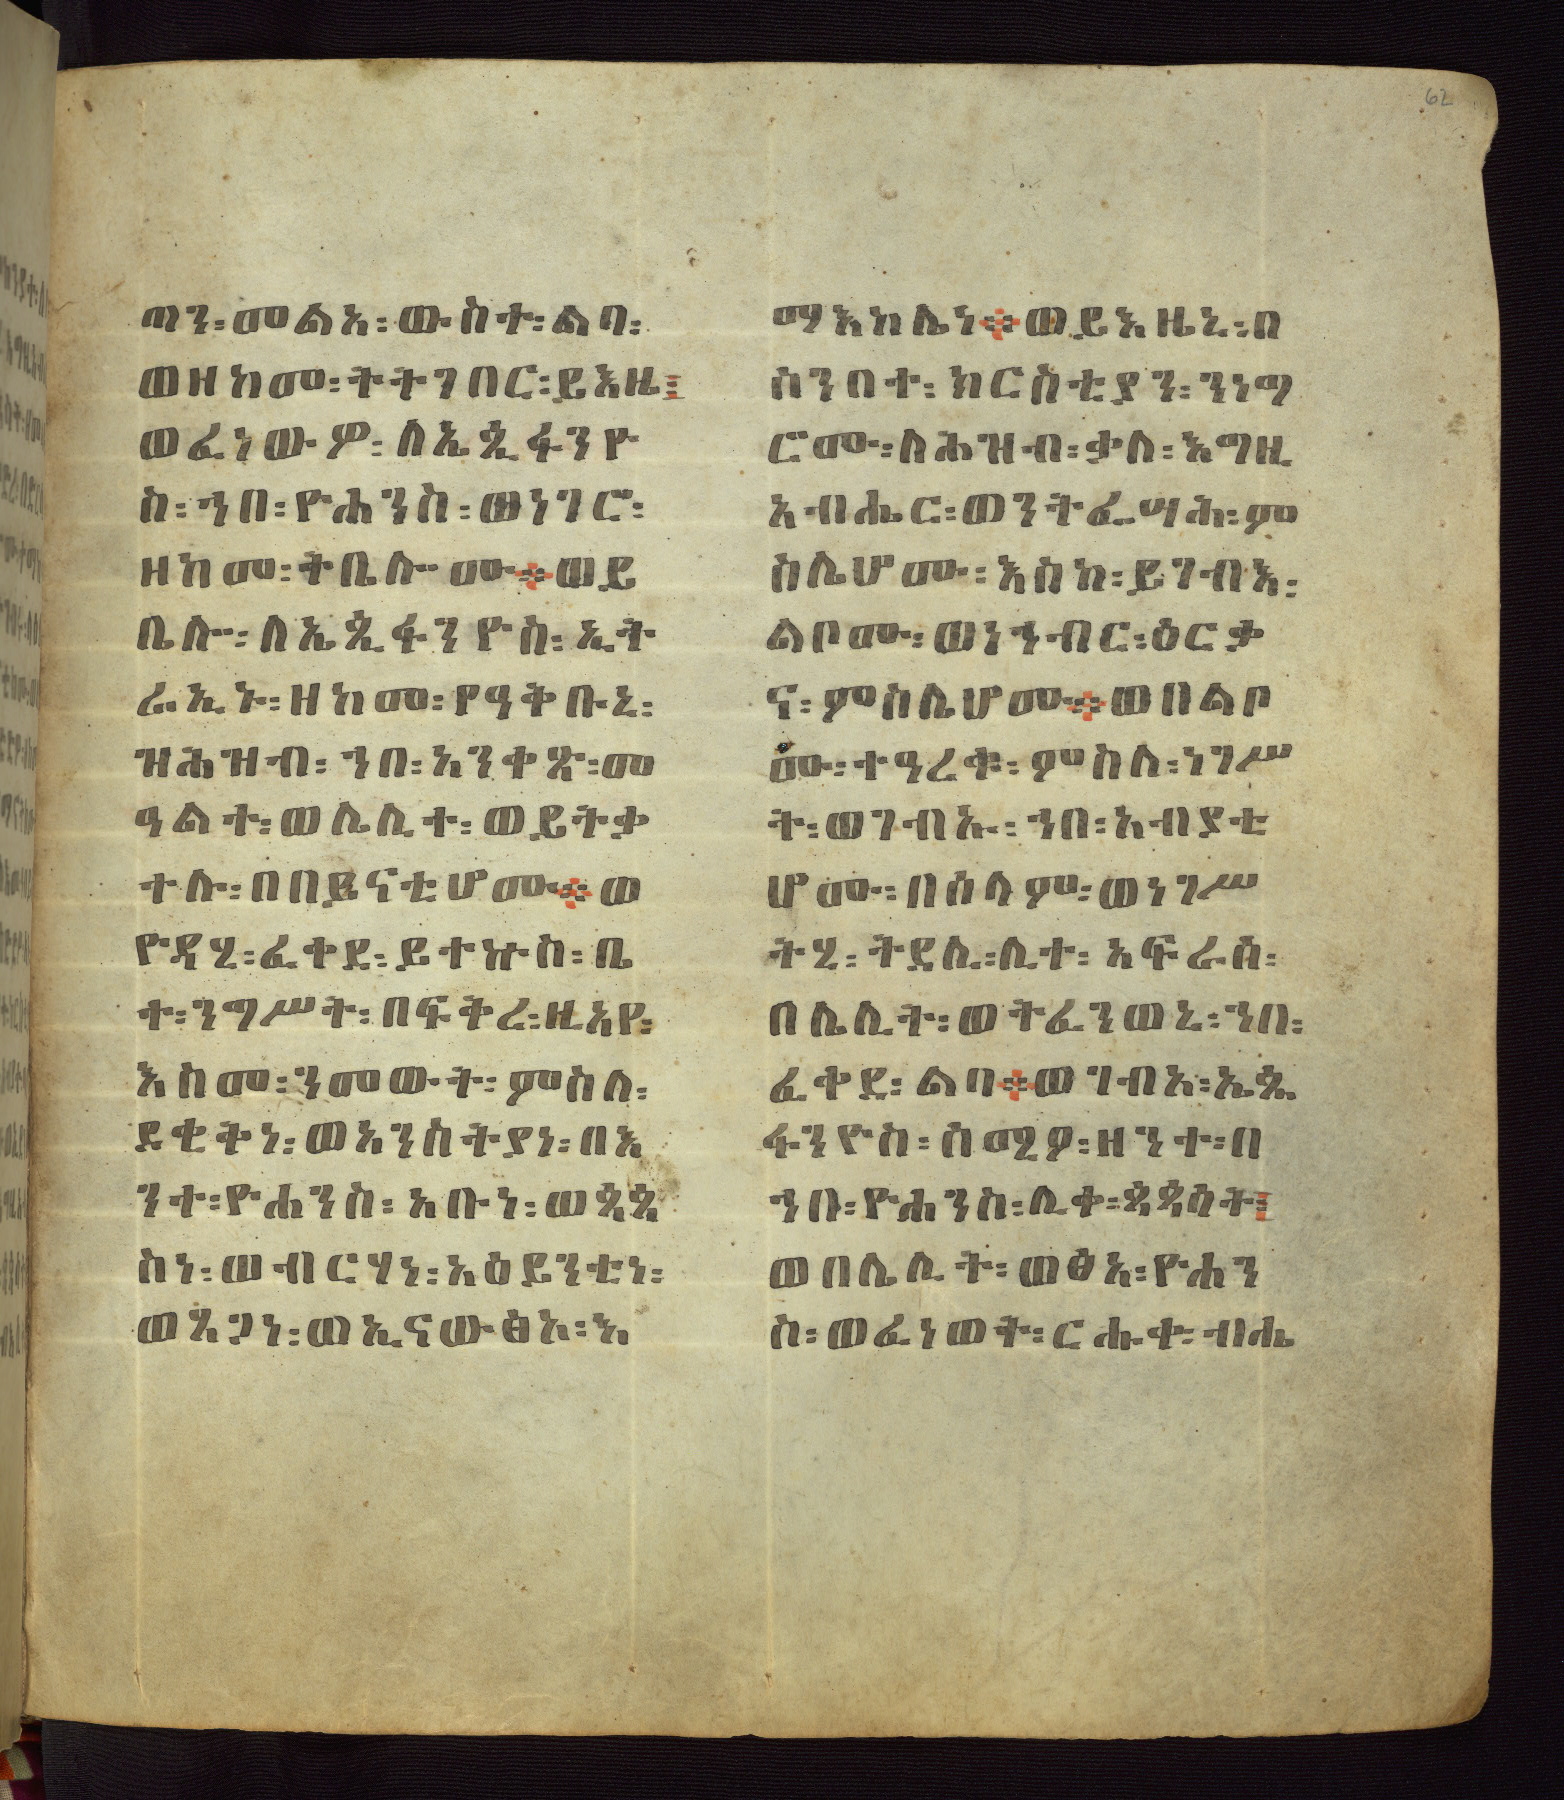 62
ጣን፡መልአ፡ውስተ፡ልባ፡
ወዘከመ፡ትትገበር፡ይእዜ፤
ወፈነውዎ፡ለኤጲፋንዮ
ስ፡ኀበ፡ዮሐንስ፡ወነገሮ፡
ዘከመ፡ትቤሎሙ።ወይ
ቤሎ፡ለኤጲፋንዮስ፡ኢት
ሬኢኑ፡ዘከመ፡የዓቅቡኒ፡
ዝሕዝብ፡ኀበ፡አንቀጽ፡መ
ዓልተ፡ወሌሊተ፡ወይትቃ
ተሉ፡በበይናቲሆሙ።ወ
ዮዳሂ፡ፈቀደ፡ይተኩስ፡ቤ
ተ፡ንግሥት፡በፍትረ፡ዚአየ፡
እስመ፡ንመውት፡ምስለ፡
ደቂቅነ፡ወአንስትያነ፡በእ
ንተ፡ዮሐንስ፡አቡነ፡ወጳጳ
ስነ፡ወብርሃነ፡አዕይንቲነ፡
ወጸጋነ፡ወኢናውፅአ፡እ
ማእከሌነ።ወይእዜኒ፡በ
ስንበተ፡ክርስቲያን፡ንነግ
ሮሙ፡ለሕዝብ፡ቃለ፡እግዚ
አብሔር፡ወንትፌሣሕ፡ም
ስሌሆሙ፡እስከ፡ይገብእ፡
ልቦሙ፡ወነኀብር፡ዕርቃ
ና፡ምስሌሆሙ።ወበልቦ
ሙ፡ተዓረቁ፡ምስለ፡ነገሥ
ት፡ወገብኡ፡ኀበ፡አብያቲ
ሆሙ፡በሰላም፡ወነገሥ
ትሂ፡ትደሊ፡ሊተ፡አፍራሰ፡
በሌሊት፡ወትፈንወኒ፡ኀበ፡
ፈቀደ፡ልባ።ወገብአ፡ኤጲ
ፋንዮስ፡ሰማዒ፡ዘንተ፡በ
ኀቡ፡ዮሐንስ፡ሊቀ፡ጳጳሳት፤
ወበሌሊት፡ወፅአ፡ዮሐን
ስ፡ወፈነወት፡ርሑቀ፡ብሔ